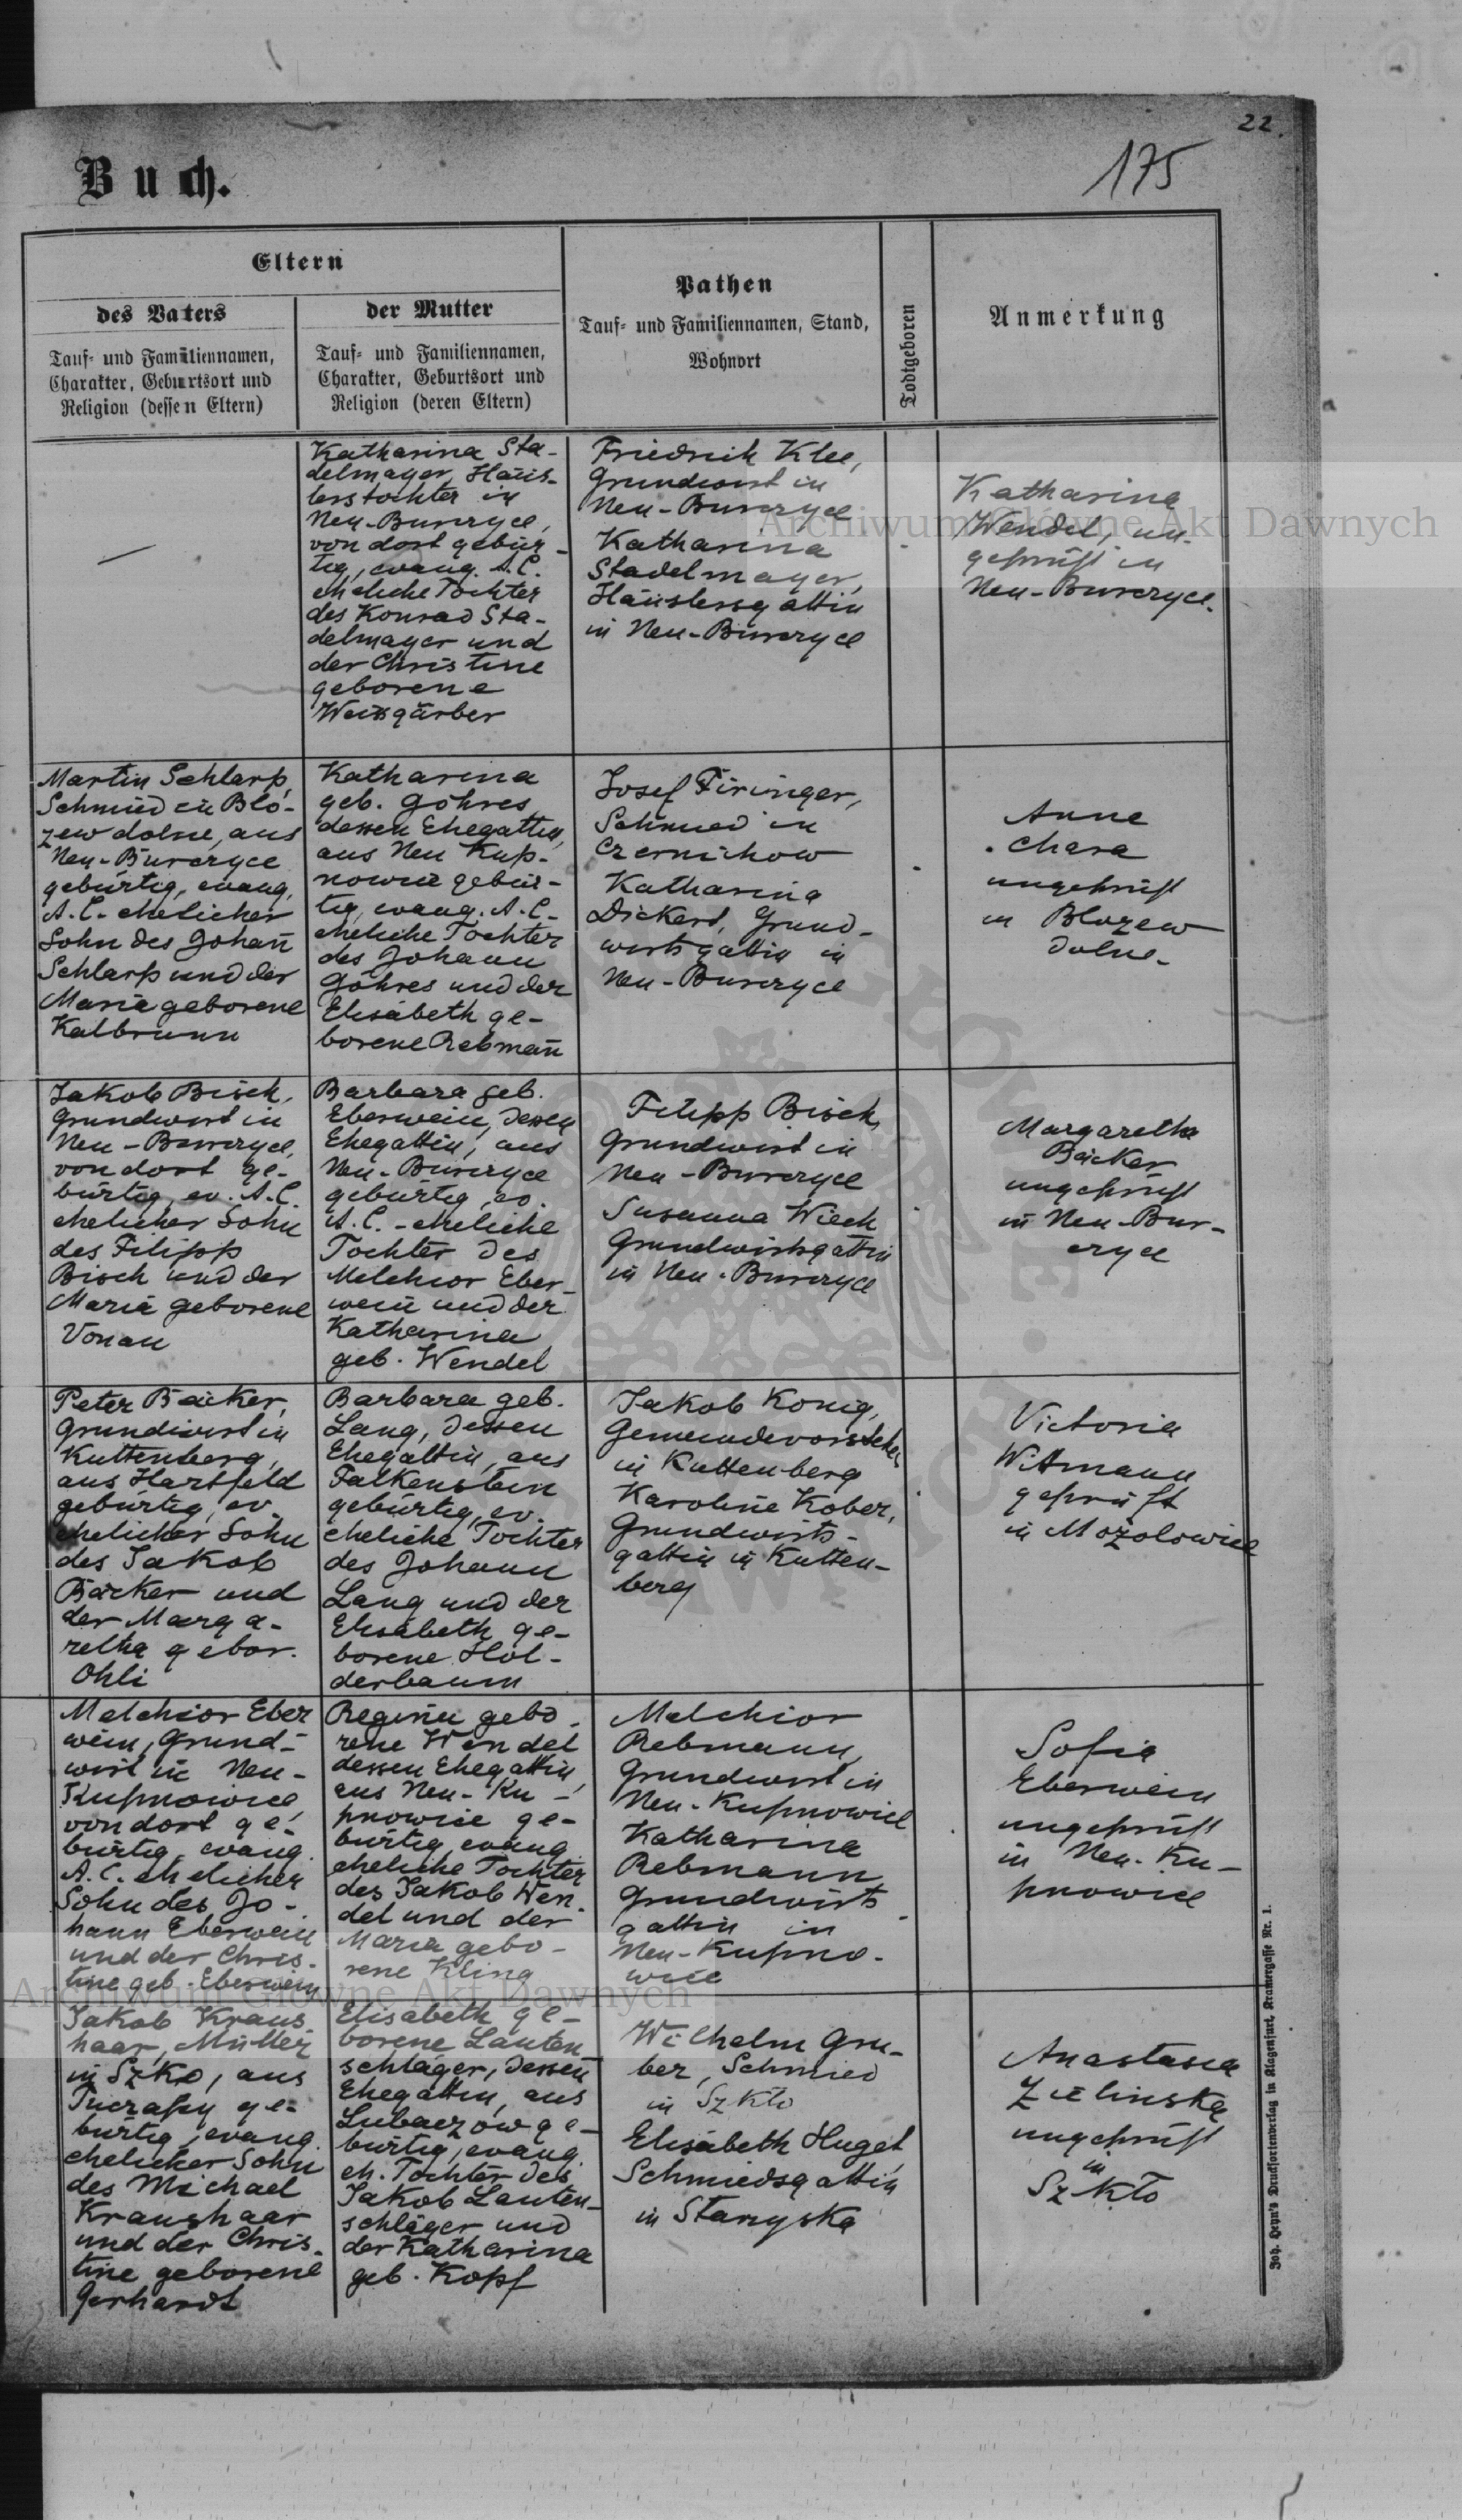 22.
175
Buch.
Eltern
des Vaters
Tauf- und Familiennamen,
Charakter, Geburtsort und
Religion (dessen Eltern)
der Mutter
Tauf- und Familiennamen,
Charakter, Geburtsort und
Religion (deren Eltern)
Pathen
Tauf- und Familiennamen, Stand,
Wohnort
Todtgeboren
Anmerkung
—
Katharina Sta-
delmayer, Häus-
lerstochter in
Neu-Burczyce,
von dort gebür-
tig, evang. A.C.
eheliche Tochter
des Konrad Sta-
delmayer und
der Christine
geborene
Weissgärber
Friedrich Klee,
Grundwirt in
Neu-Burczyce
Katharina
Stadelmayer,
Häuslersgattin
in Neu-Burczyce
Katharina
Wendel, un-
geprüft in
Neu-Burczyce.
Martin Schlarp,
Schmied in Bło-
zew dolne, aus
Neu-Burczyce
gebürtig, evang.
A.C. ehelicher
Sohn des Johan̄
Schlarp und der
Maria geborene
Kalbrunn
Katharina
geb. Göhres
dessen Ehegattin,
aus Neu Kup-
nowice gebür-
tig, evang. A.C.
eheliche Tochter
des Johann
Göhres und der
Elisabeth ge-
borene Rebman̄
Josef Firinger,
Schmied in
Czernichow
Katharina
Dickert, Grund-
wirtsgattin in
Neu-Burczyce
Anne
Chara
ungeprüft
in Blozew
dolne.
Jakob Bisch,
Grundwirt in
Neu-Burczyce,
von dort ge-
bürtig, ev. A.C.
ehelicher Sohn
des Filipp
Bisch und der
Maria geborene
Vonau
Barbara geb.
Eberwein, dessen
Ehegattin, aus
Neu-Burczyce
gebürtig, ev.
A.C.-eheliche
Tochter des
Melchior Eber-
wein und der
Katharina
geb. Wendel
Filipp Bisch,
Grundwirt in
Neu-Burczyce
Susanna Wiech
Grundwirtsgattin
in Neu-Burczyce
Margaretha
Bäcker
ungeprüft
in Neu-Bur-
czyce
Peter Bäcker,
Grundwirt in
Kuttenberg,
aus Hartfeld
gebürtig, ev.
ehelicher Sohn
des Jakob
Bäcker und
der Marga-
retha gebor.
Ohli
Barbara geb.
Lang, dessen
Ehegattin, aus
Falkenstein
gebürtig, ev.
eheliche Tochter
des Johann
Lang und der
Elisabeth ge-
borene Hol-
derbaum
Jakob König,
Gemeindevorsteher
in Kuttenberg
Karoline Kober,
Grundwirts-
gattin in Kutten-
berg
Victoria
Wittmann
geprüft
in Mozolowice
Melchior Eber
wein, Grund-
wirt in Neu-
Kupnowice,
von dort ge-
bürtig, evang.
A.C. ehelicher
Sohn des Jo-
hann Eberwein
und der Chris-
tine geb. Eberwein
Regina gebo-
rene Wendel
dessen Ehegattin,
aus Neu-Ku-
pnowice ge-
bürtig, evang.
eheliche Tochter
des Jakob Wen-
del und der
Maria gebo-
rene Kling
Melchior
Rebmann,
Grundwirt in
Neu-Kupnowice
Katharina
Rebmann
Grundwirts
gattin in
Neu-Kupno-
wice
Sofia
Eberwein
ungeprüft
in Neu-Ku-
pnowice
Jakob Kraus
haar, Müller
in Szkło, aus
Tuczapy ge-
bürtig, evang.
ehelicher Sohn
des Michael
Kraushaar
und der Chris-
tine geborene
Gerhardt
Elisabeth ge-
borene Lauten-
schläger, dessen
Ehegattin, aus
Lubaczow ge-
bürtig, evang.
eh. Tochter des
Jakob Lauten-
schläger und
der Katharina
geb. Kopf
Wilhelm Gru-
ber, Schmied
in Szkło
Elisabeth Huget
Schmiedsgattin
in Starzyska
Anastasia
Zielinska
ungeprüft
in
Szkło
Joh. Heyn's Drucksortenverlag in Klagenfurt, Kramergasse Nr. 1.
Archiwum Główne Akt Dawnych
Archiwum Główne Akt Dawnych